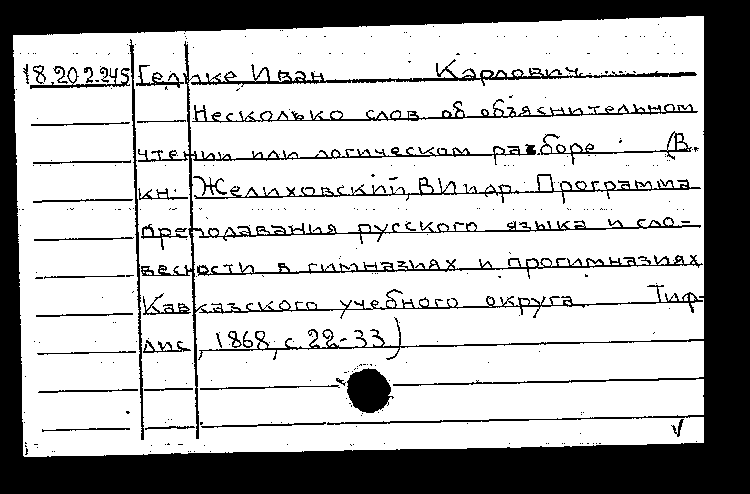 18.20 2.245 Гелике Иван Карлович
Несколько слов об объяснительном
чтении или логическом разборе. (В
кн: Желиховский, В И и др. Программа
преподавания русского языка и сло-
весности в гимназиях и прогимназиях
Кавказского учебного округа. Тиф-
лис, 1868, с. 22-33)